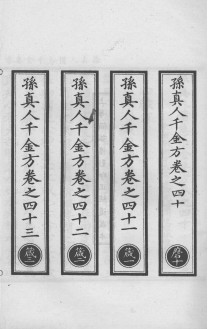 孫真人千金方卷之四十
孫真人千金方卷之四十一
藏一
孫真人千金方卷之四十二
藏二
孫真人千金方卷之四十三
藏三